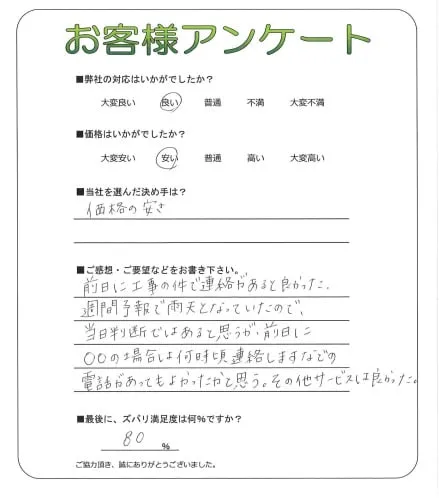 お客様アンケート
■弊社の対応はいかがでしたか？
大変良い 良い 普通 不満 大変不満
■価格はいかがでしたか？
大変安い 安い 普通 高い 大変高い
■当社を選んだ決め手は？
価格の安さ
■ご感想・ご要望などをお書き下さい。
前日に工事の件で連絡があると良かった。
週間予報で雨天となっていたので、
当日判断ではあると思うが、前日に
〇〇の場合は何時頃連絡しますなどの
電話があってもよかったかと思う。その他サービスは良かった。
■最後に、ズバリ満足度は何%ですか？
80 %
ご協力頂き、誠にありがとうございました。